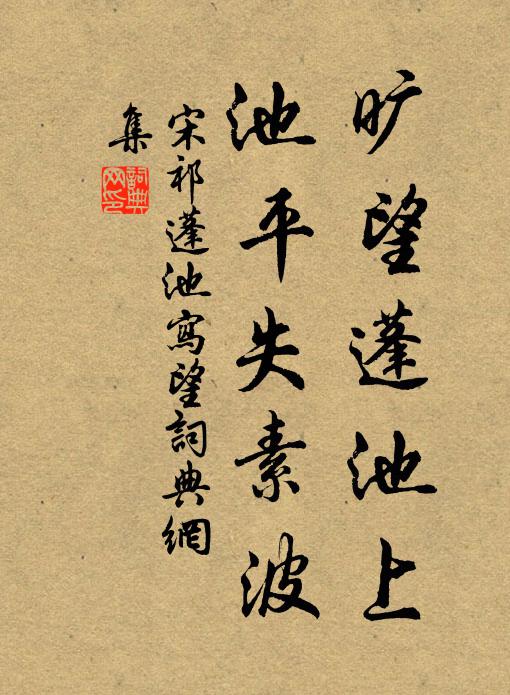 旷望蓬池上
池平失素波
宋祁蓬池寫望詞典網
集
詞典
网印